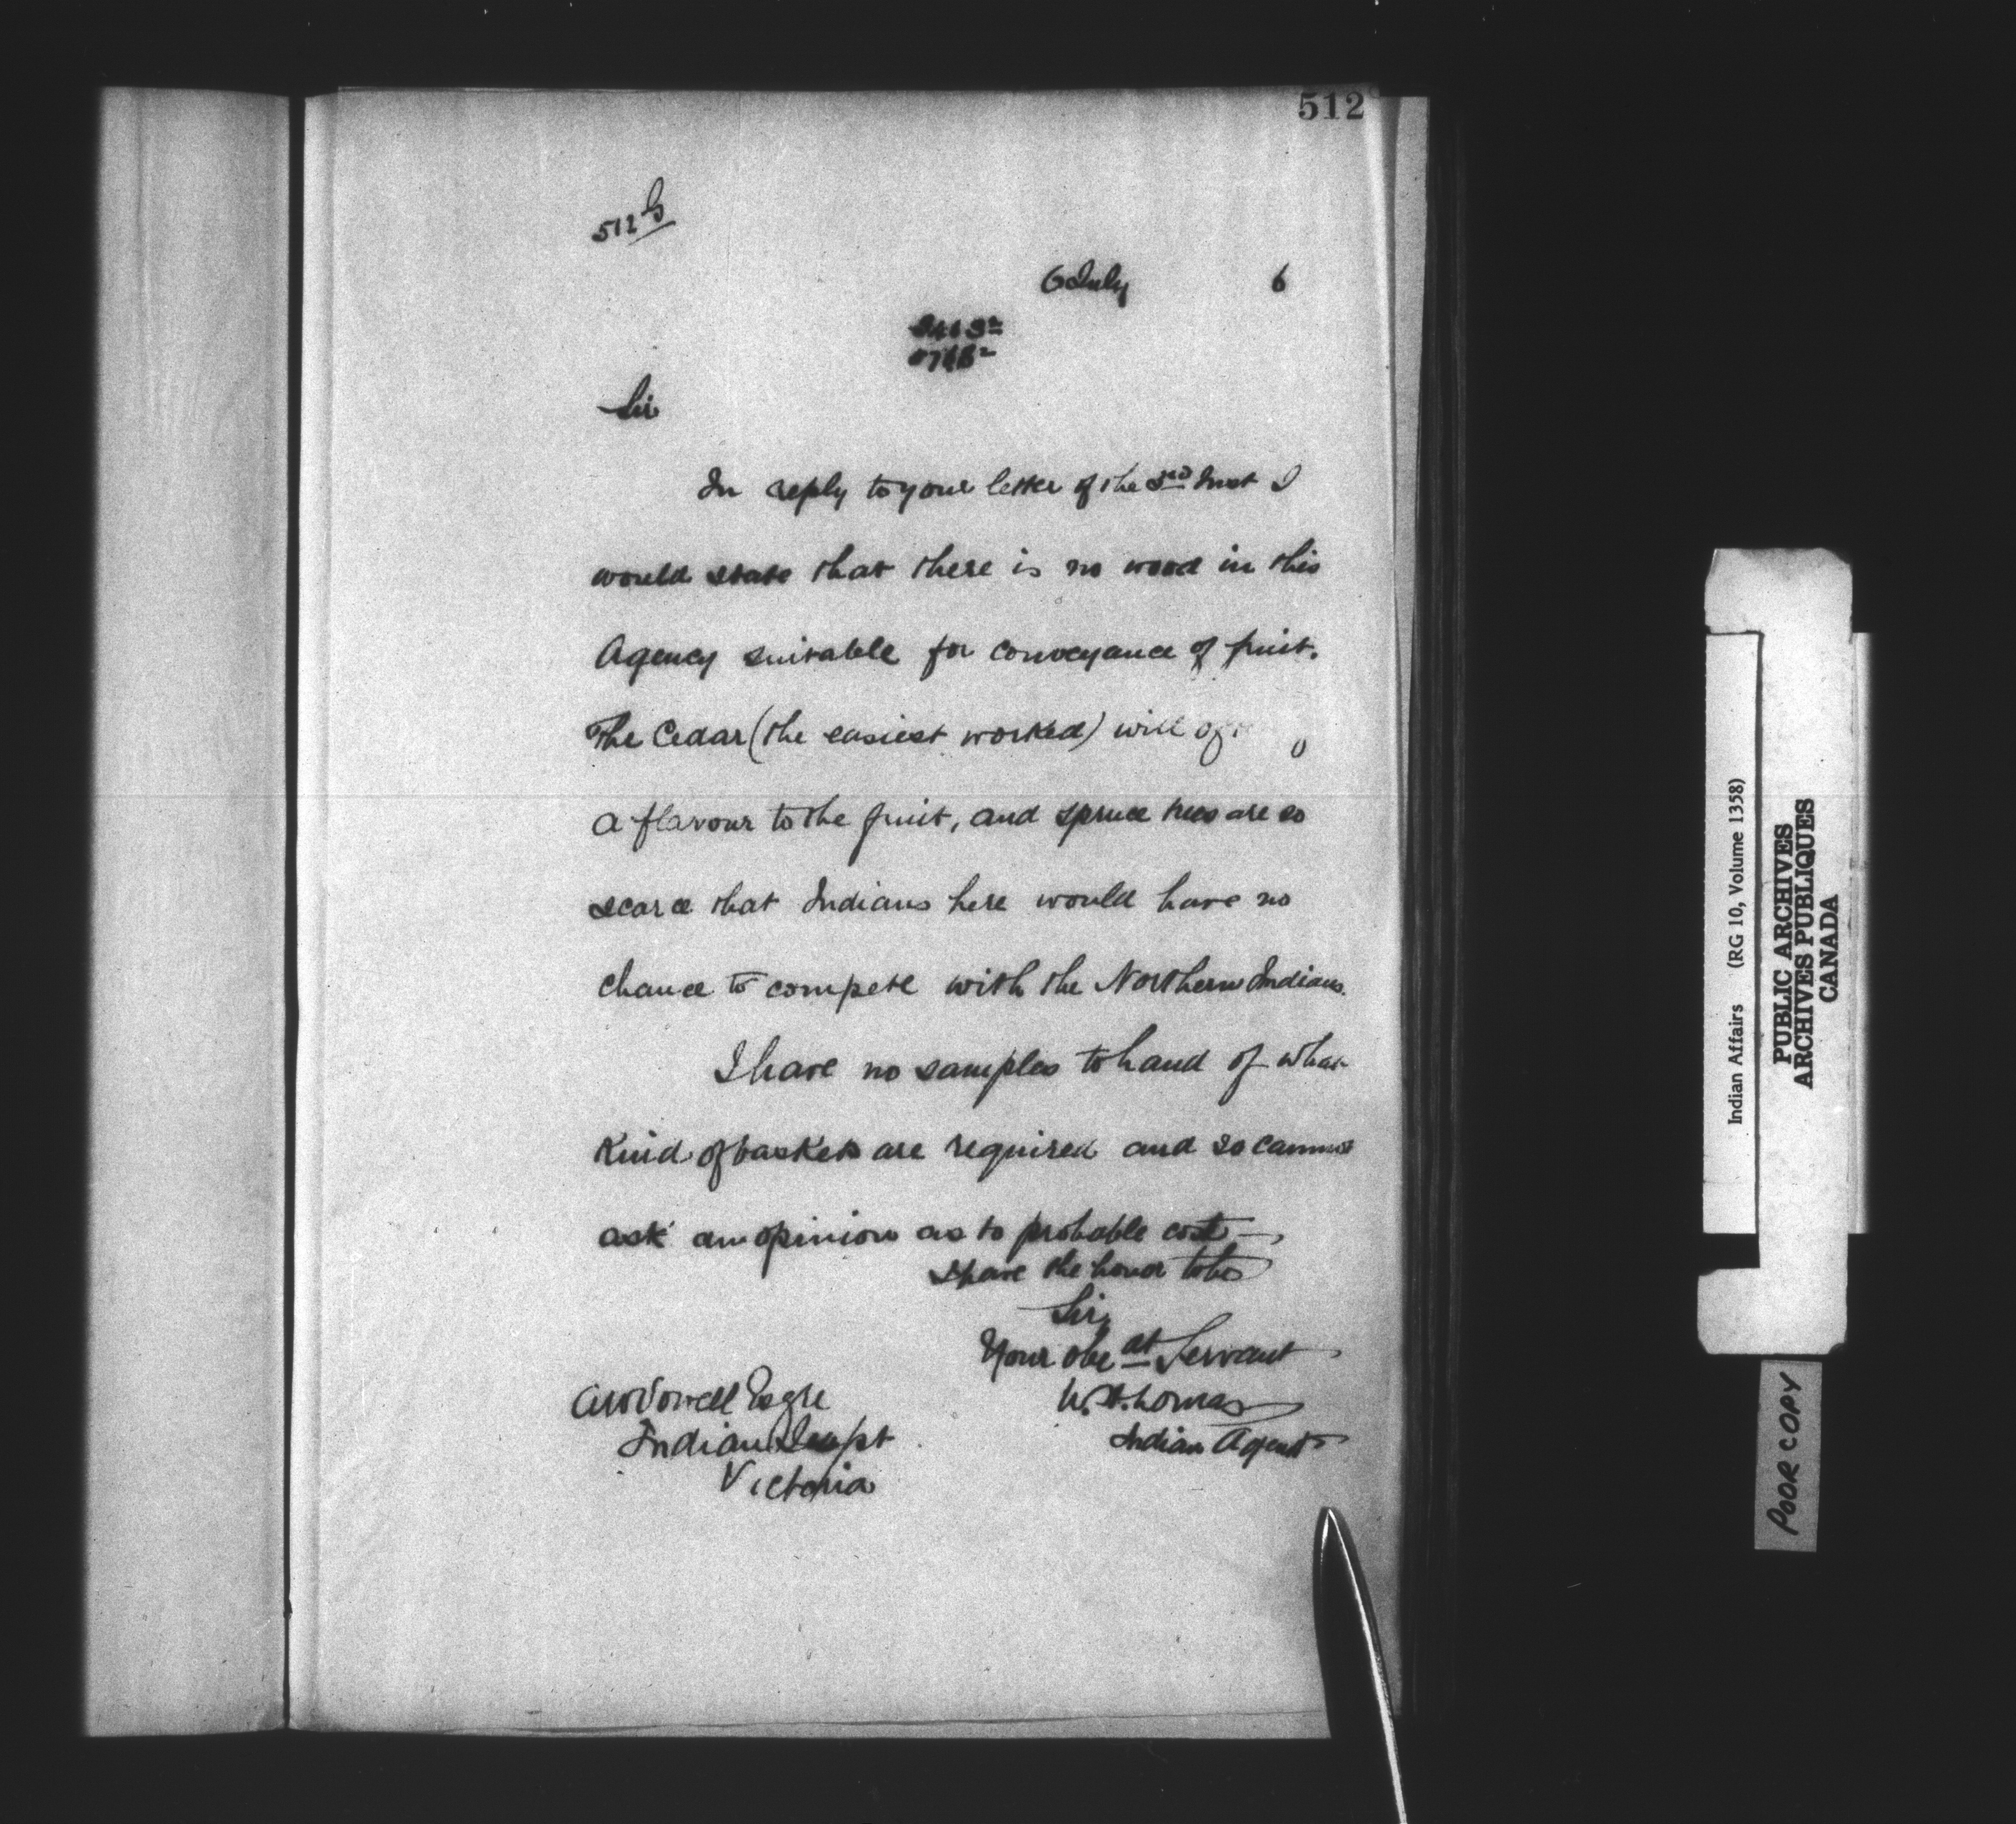 512
512 B
6 July 6
Sir
In reply to your letter of the 3rd Inst I
would state that there is no wood in this
Agency suitable for conveyance of fruit.
The Cedar (the easiest worked) will
a flavour to the fruit, and spruce trees are so
scarce that Indians here would have no
chance to compete with the Northern Indians.
I have no samples to hand of what
kind of baskets are required and so cannot
ask an opinion as to probable cost —
I have the honor to be
Sir,
Your obedt Servant
W. H. Lomas
Indian Agent
A W Vowell Esqre
Indian Supt
Victoria
Indian Affairs (RG 10, Volume 1358)
PUBLIC ARCHIVES
ARCHIVES PUBLIQUES
CANADA
POOR COPY